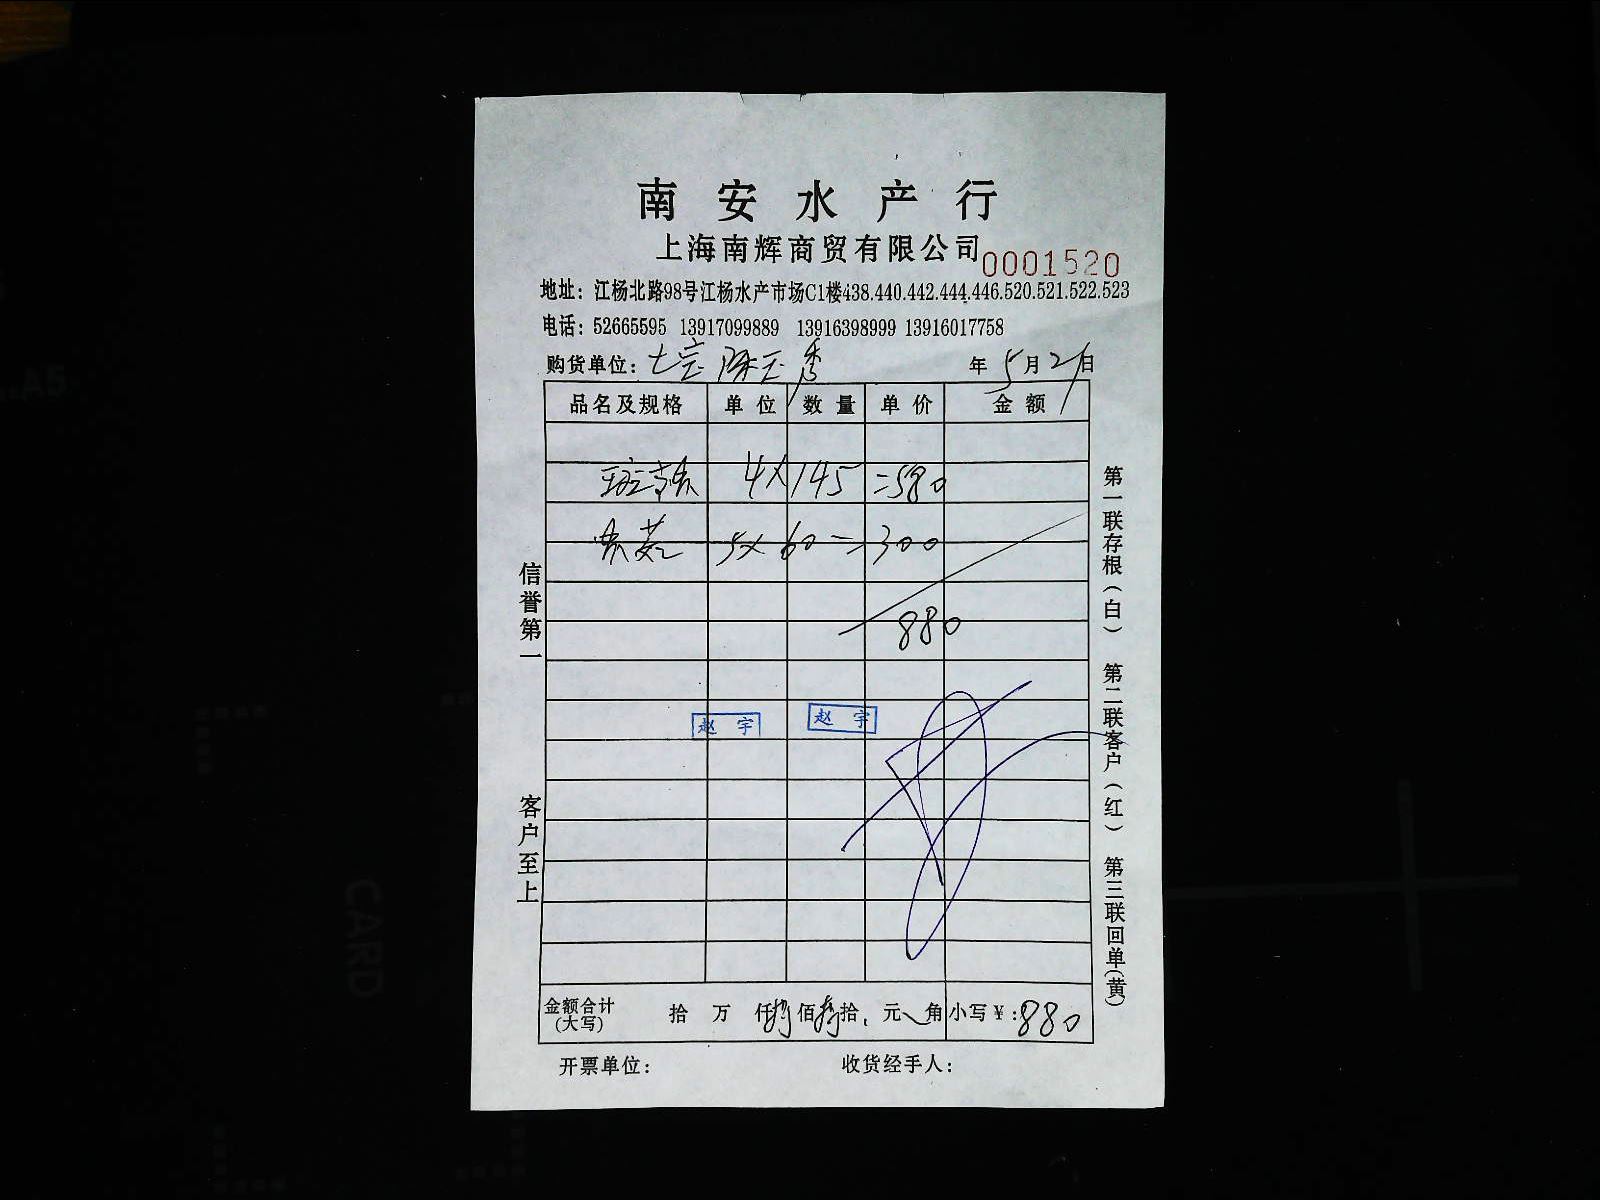 南安水产行
上海南辉商贸有限公司 0001520
地址：江杨北路98号江杨水产市场C1楼438.440.442.444.446.520.521.522.523
电话：52665595 13917099889 13916398999 13916017758
购货单位：七宝 陈玉秀 年5月21日
品名及规格 单位 数量 单价 金额
4×145=580
5×60=300
880
赵宇 赵宇
信誉第一
客户至上
第一联存根（白） 第二联客户（红） 第三联回单（黄）
金额合计（大写） 拾 万 仟捌佰捌拾 元 角 小写￥：880
开票单位： 收货经手人：
A5
CARD